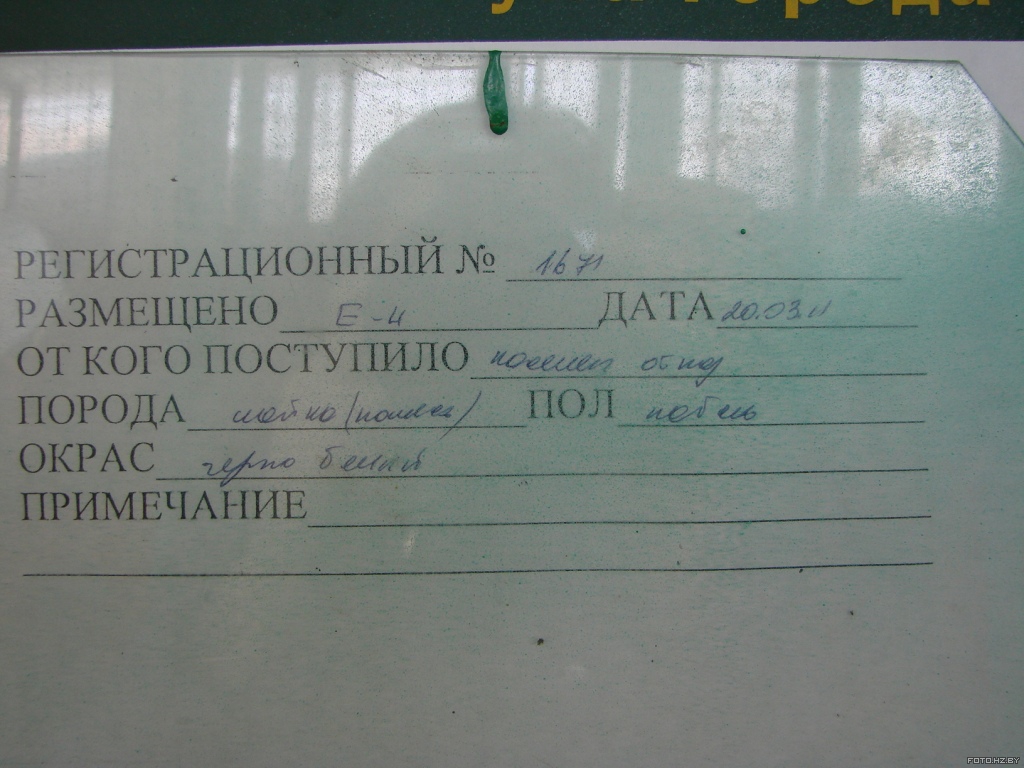 города
РЕГИСТРАЦИОННЫЙ № 1671
РАЗМЕЩЕНО Е-4 ДАТА 20.03.11
ОТ КОГО ПОСТУПИЛО
ПОРОДА лайка (помесь) ПОЛ кобель
ОКРАС черно белый
ПРИМЕЧАНИЕ
FOTO.HZ.BY